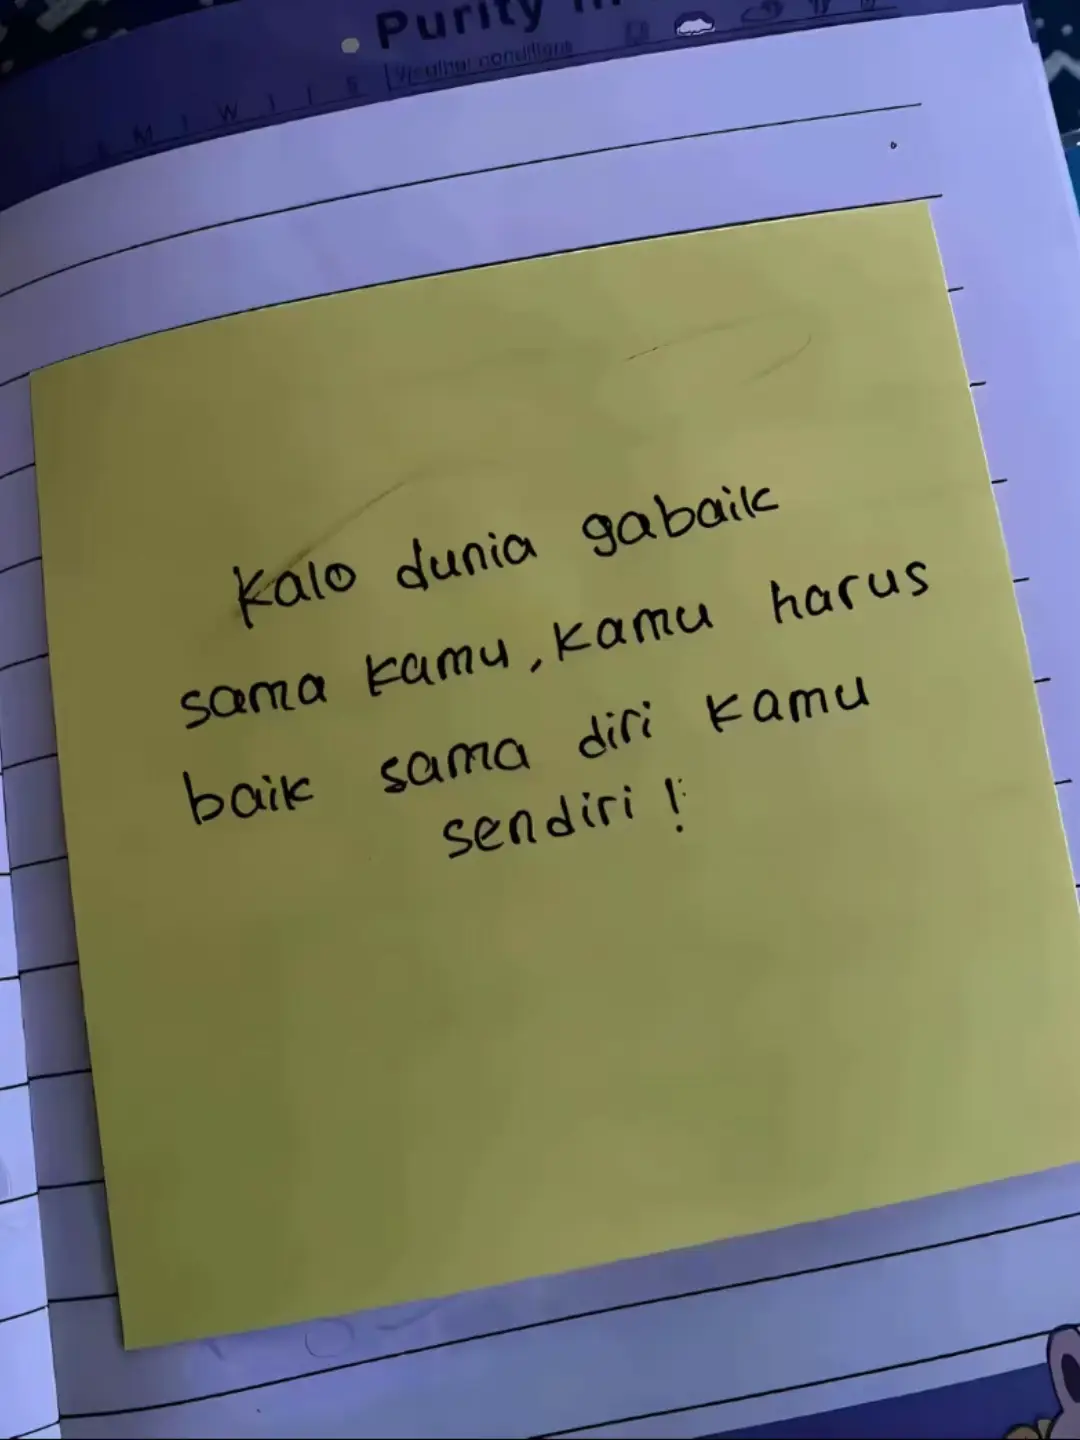 Purity
Weather conditions
Kalo dunia gabaik
sama kamu, kamu harus
baik sama diri kamu
sendiri !